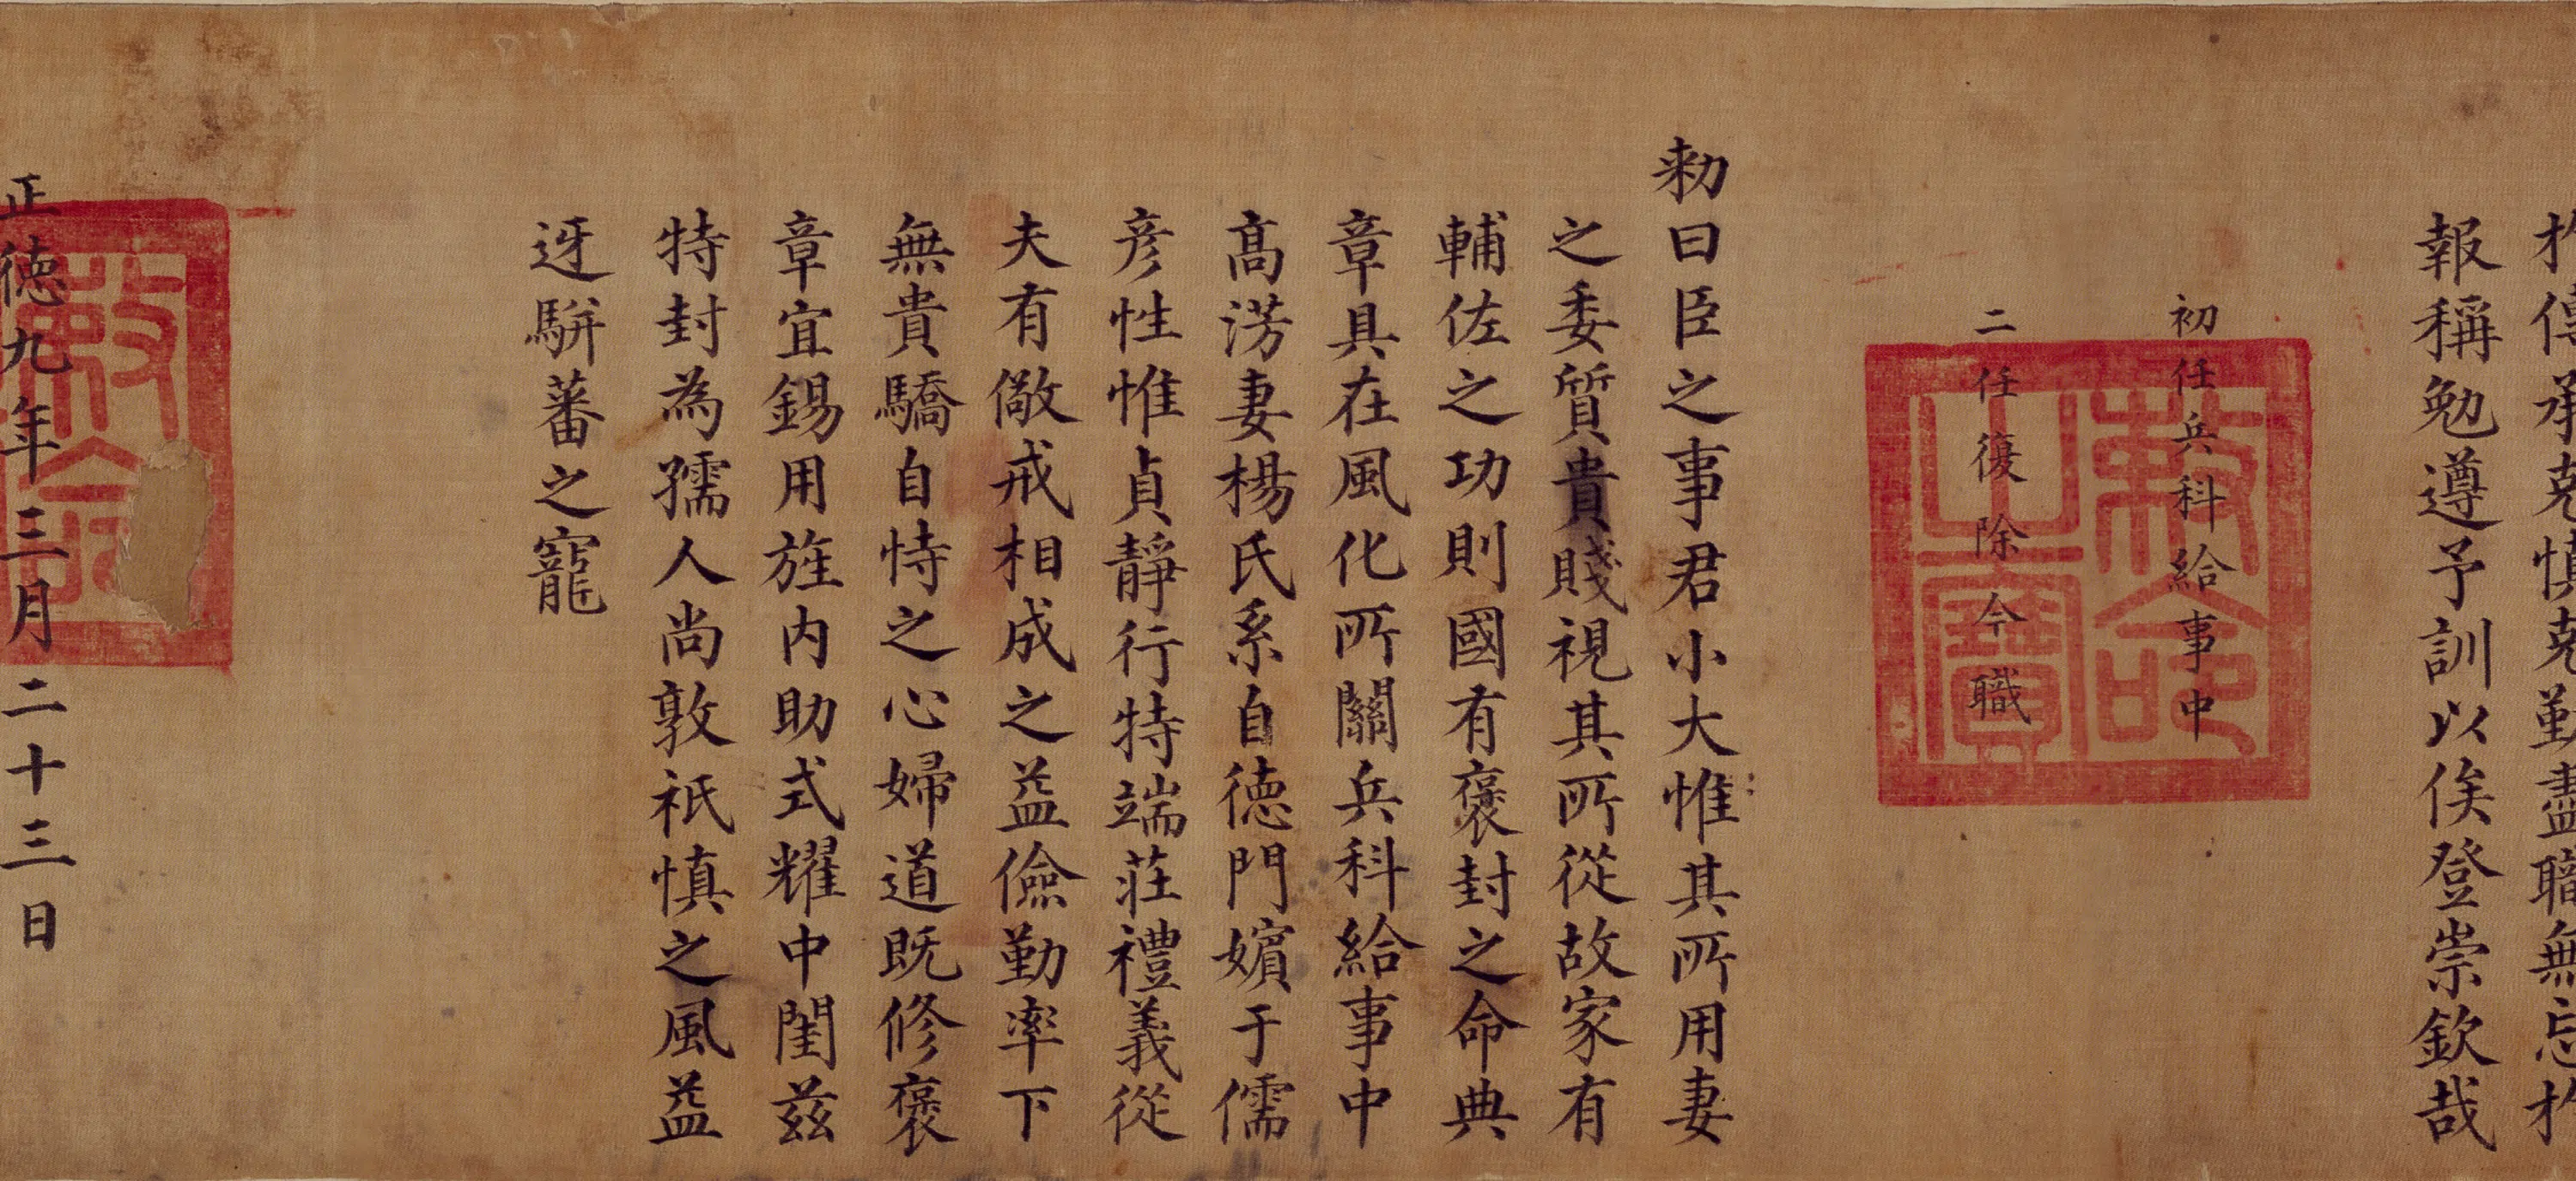 扵傳承克慎克勤盡職無忘扵
報稱勉遵予訓以俟登崇欽哉
初任兵科給事中
二任復除今職
敕命之寶
勑曰臣之事君小大惟其所用妻
之委質貴賤視其所從故家有
輔佐之功則國有褒封之命典
章具在風化所關兵科給事中
髙淓妻楊氏系自德門嬪于儒
彥性惟貞靜行特端莊禮義從
夫有儆戒相成之益儉勤率下
無貴驕自恃之心婦道既修褒
章宜錫用旌内助式耀中閨茲
特封為孺人尚敦祇慎之風益
迓駢蕃之寵
正德九年三月二十三日
敕命